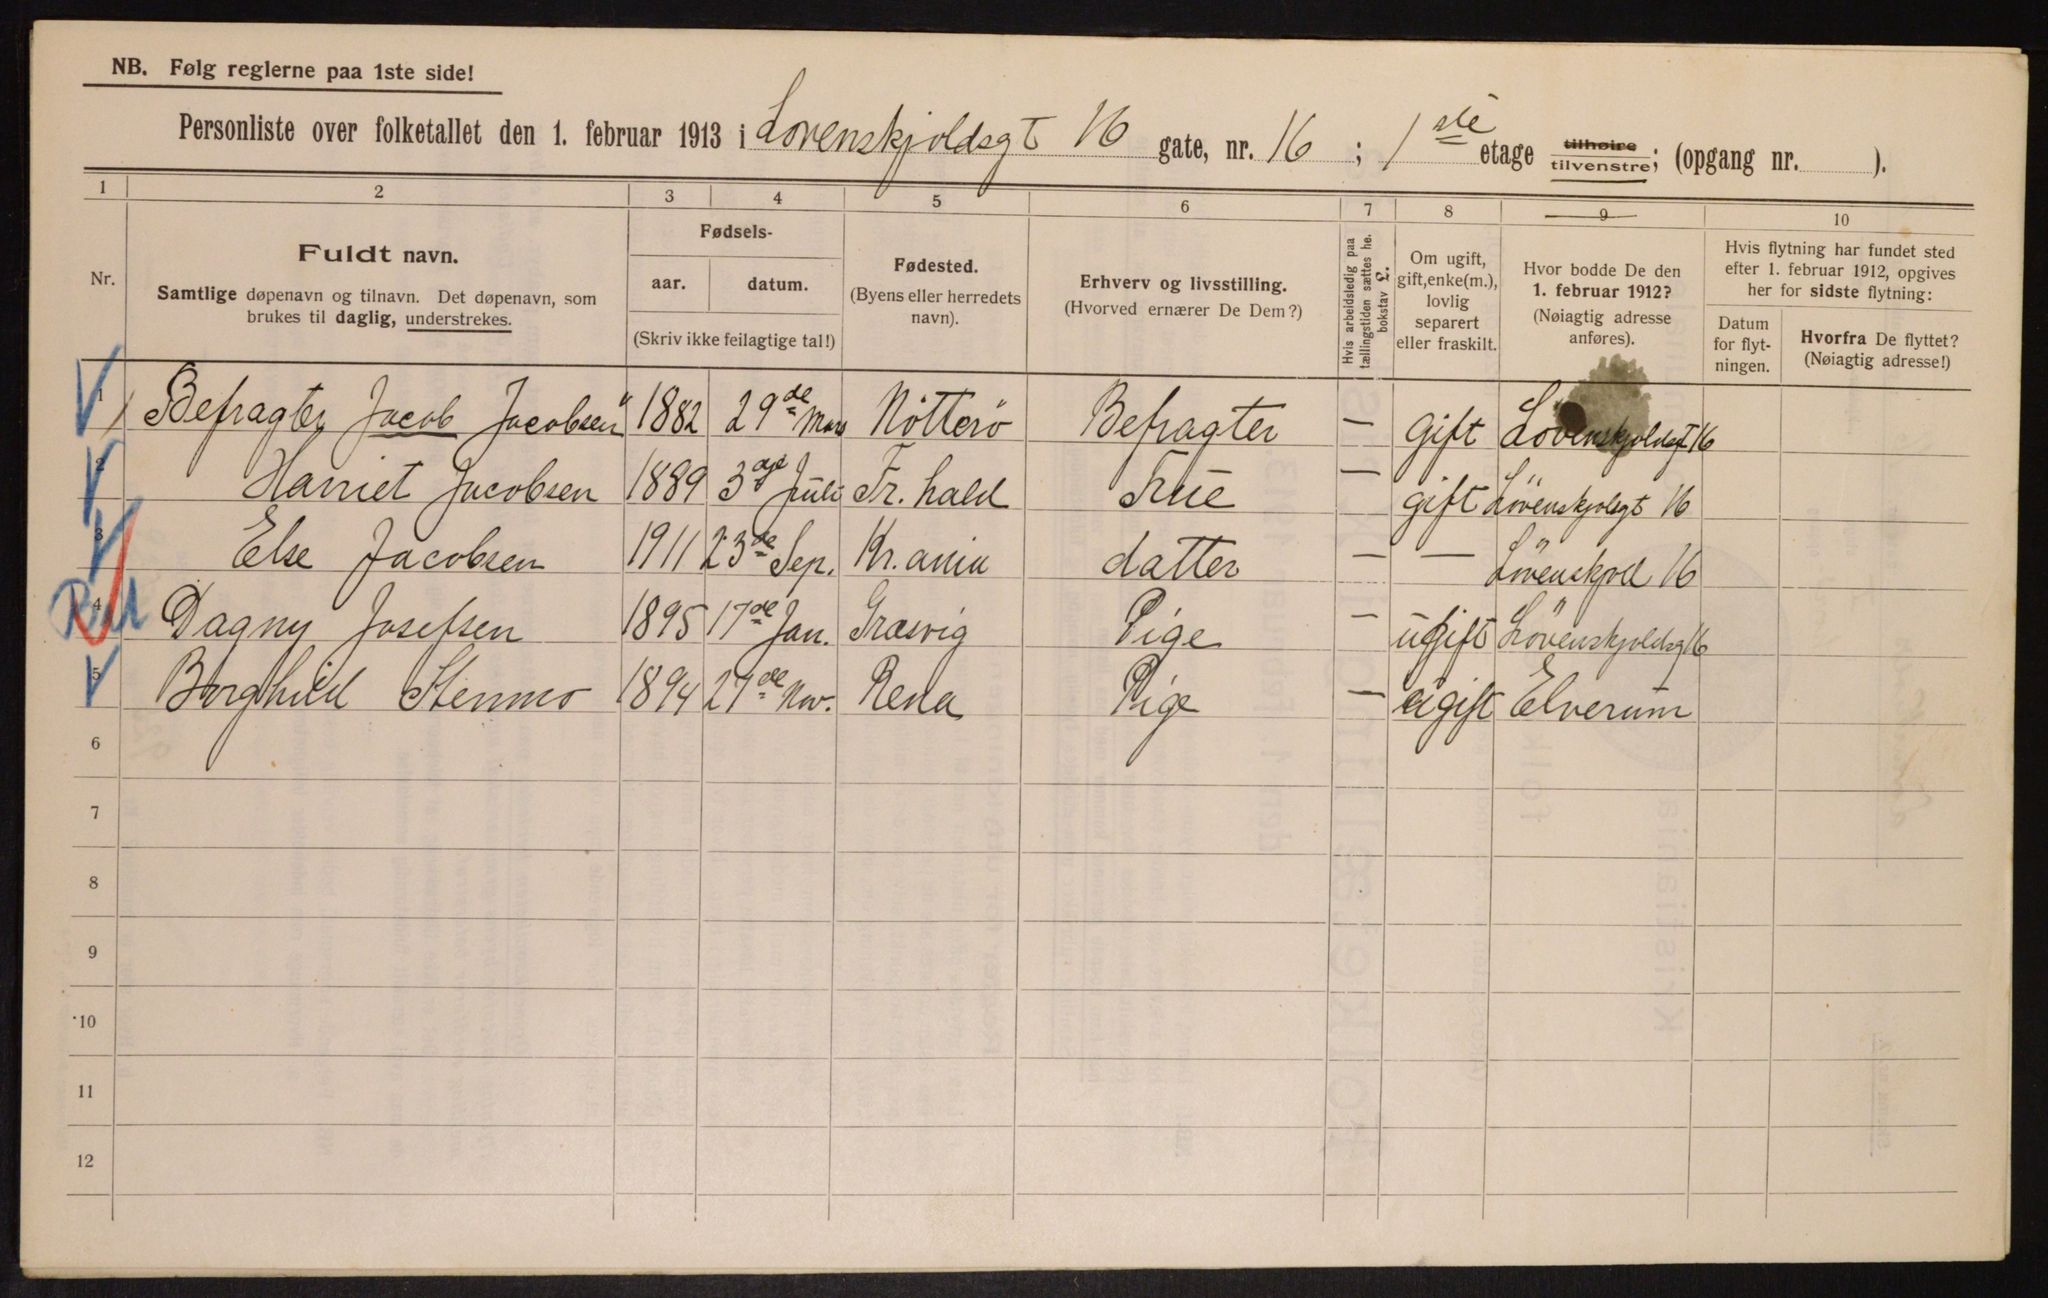 NB. Følg reglerne paa 1ste side!
Personliste over folketallet den 1. februar 1913 i Lovenskjoldsgt 16 gate, nr. 16 ; 1 ste etage tilhøire tilvenstre; (opgang nr. ).
1 2 3 4 5 6 7 8 9 10
Nr.
Fuldt navn.
Samtlige døpenavn og tilnavn. Det døpenavn, som
brukes til daglig, understrekes.
Fødsels-
aar. datum.
(Skriv ikke feilagtige tal!)
Fødested.
(Byens eller herredets
navn).
Erhverv og livsstilling.
(Hvorved ernærer De Dem?)
Hvis arbeidsledig paa
tællingstiden sættes he.
bokstav L.
Om ugift,
gift, enke(m.),
lovlig
separert
eller fraskilt.
Hvor bodde De den
1. februar 1912?
(Nøiagtig adresse
anføres).
Hvis flytning har fundet sted
efter 1. februar 1912, opgives
her for sidste flytning:
Datum
for flyt-
ningen.
Hvorfra De flyttet?
(Nøiagtig adresse!)
1 Befragter Jacob Jacobsen 1882 29de Mars Nötterö Befragter — Gift Lövenskjoldsgt 16
2 Harriet Jacobsen 1889 3de Juli Fr. hald Frue — gift Lövenskjolsgt 16
3 Else Jacobsen 1911 23de Sep. Kr. ania datter — — Lövenskjold 16
4 Dagny Josefsen 1895 17de Jan. Græsvig Pige — ugift Lövenskjoldsg 16
5 Borghild Stenmo 1894 27de Nov. Rena Pige — ugift Elverum
6
7
8
9
10
11
12